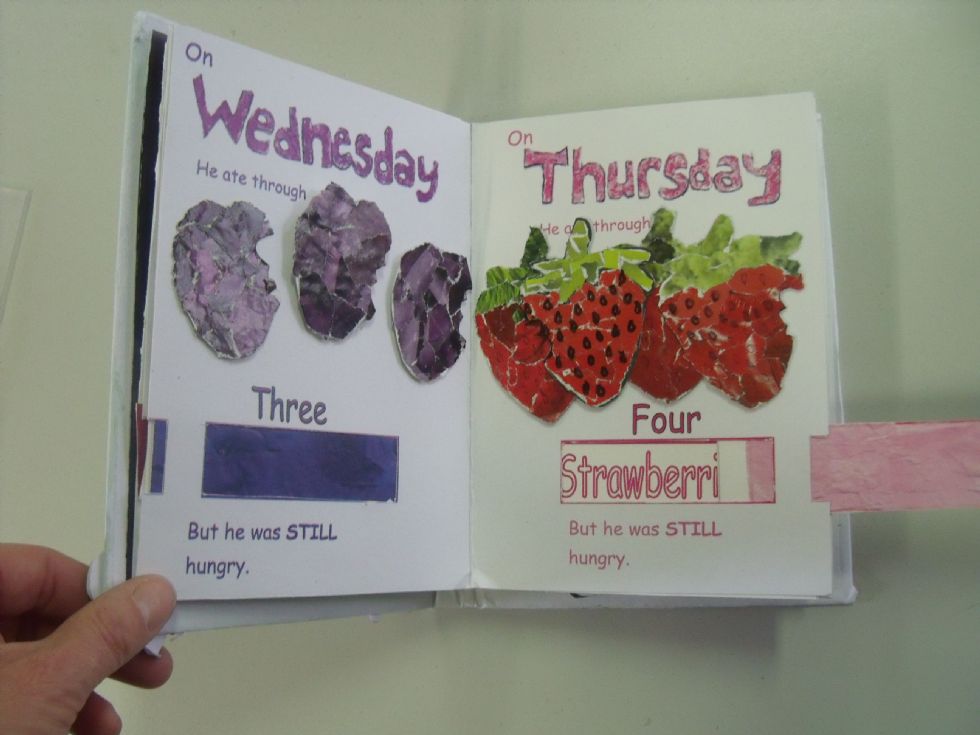 On
Wednesday
He ate through
Three
But he was STILL
hungry.
On
Thursday
He through
Four
Strawberri
But he was STILL
hungry.